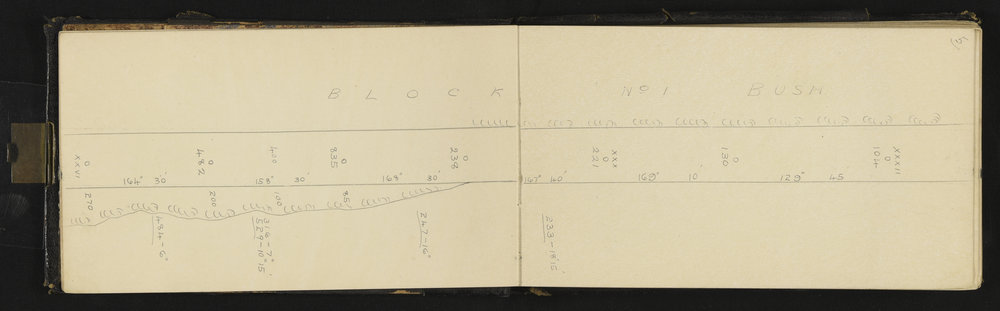 5
BLOCK No 1 BUSH
XXVI 0
0 482
400
0 835
0 238
XXX 0 221
0 130
XXXII 0 104
164° 30'
158° 30'
168° 30'
147° 40'
169° 10'
129° 45
270
200
100
85
484-6°
318-7°
529-10°15'
247-16°
233-18°15'